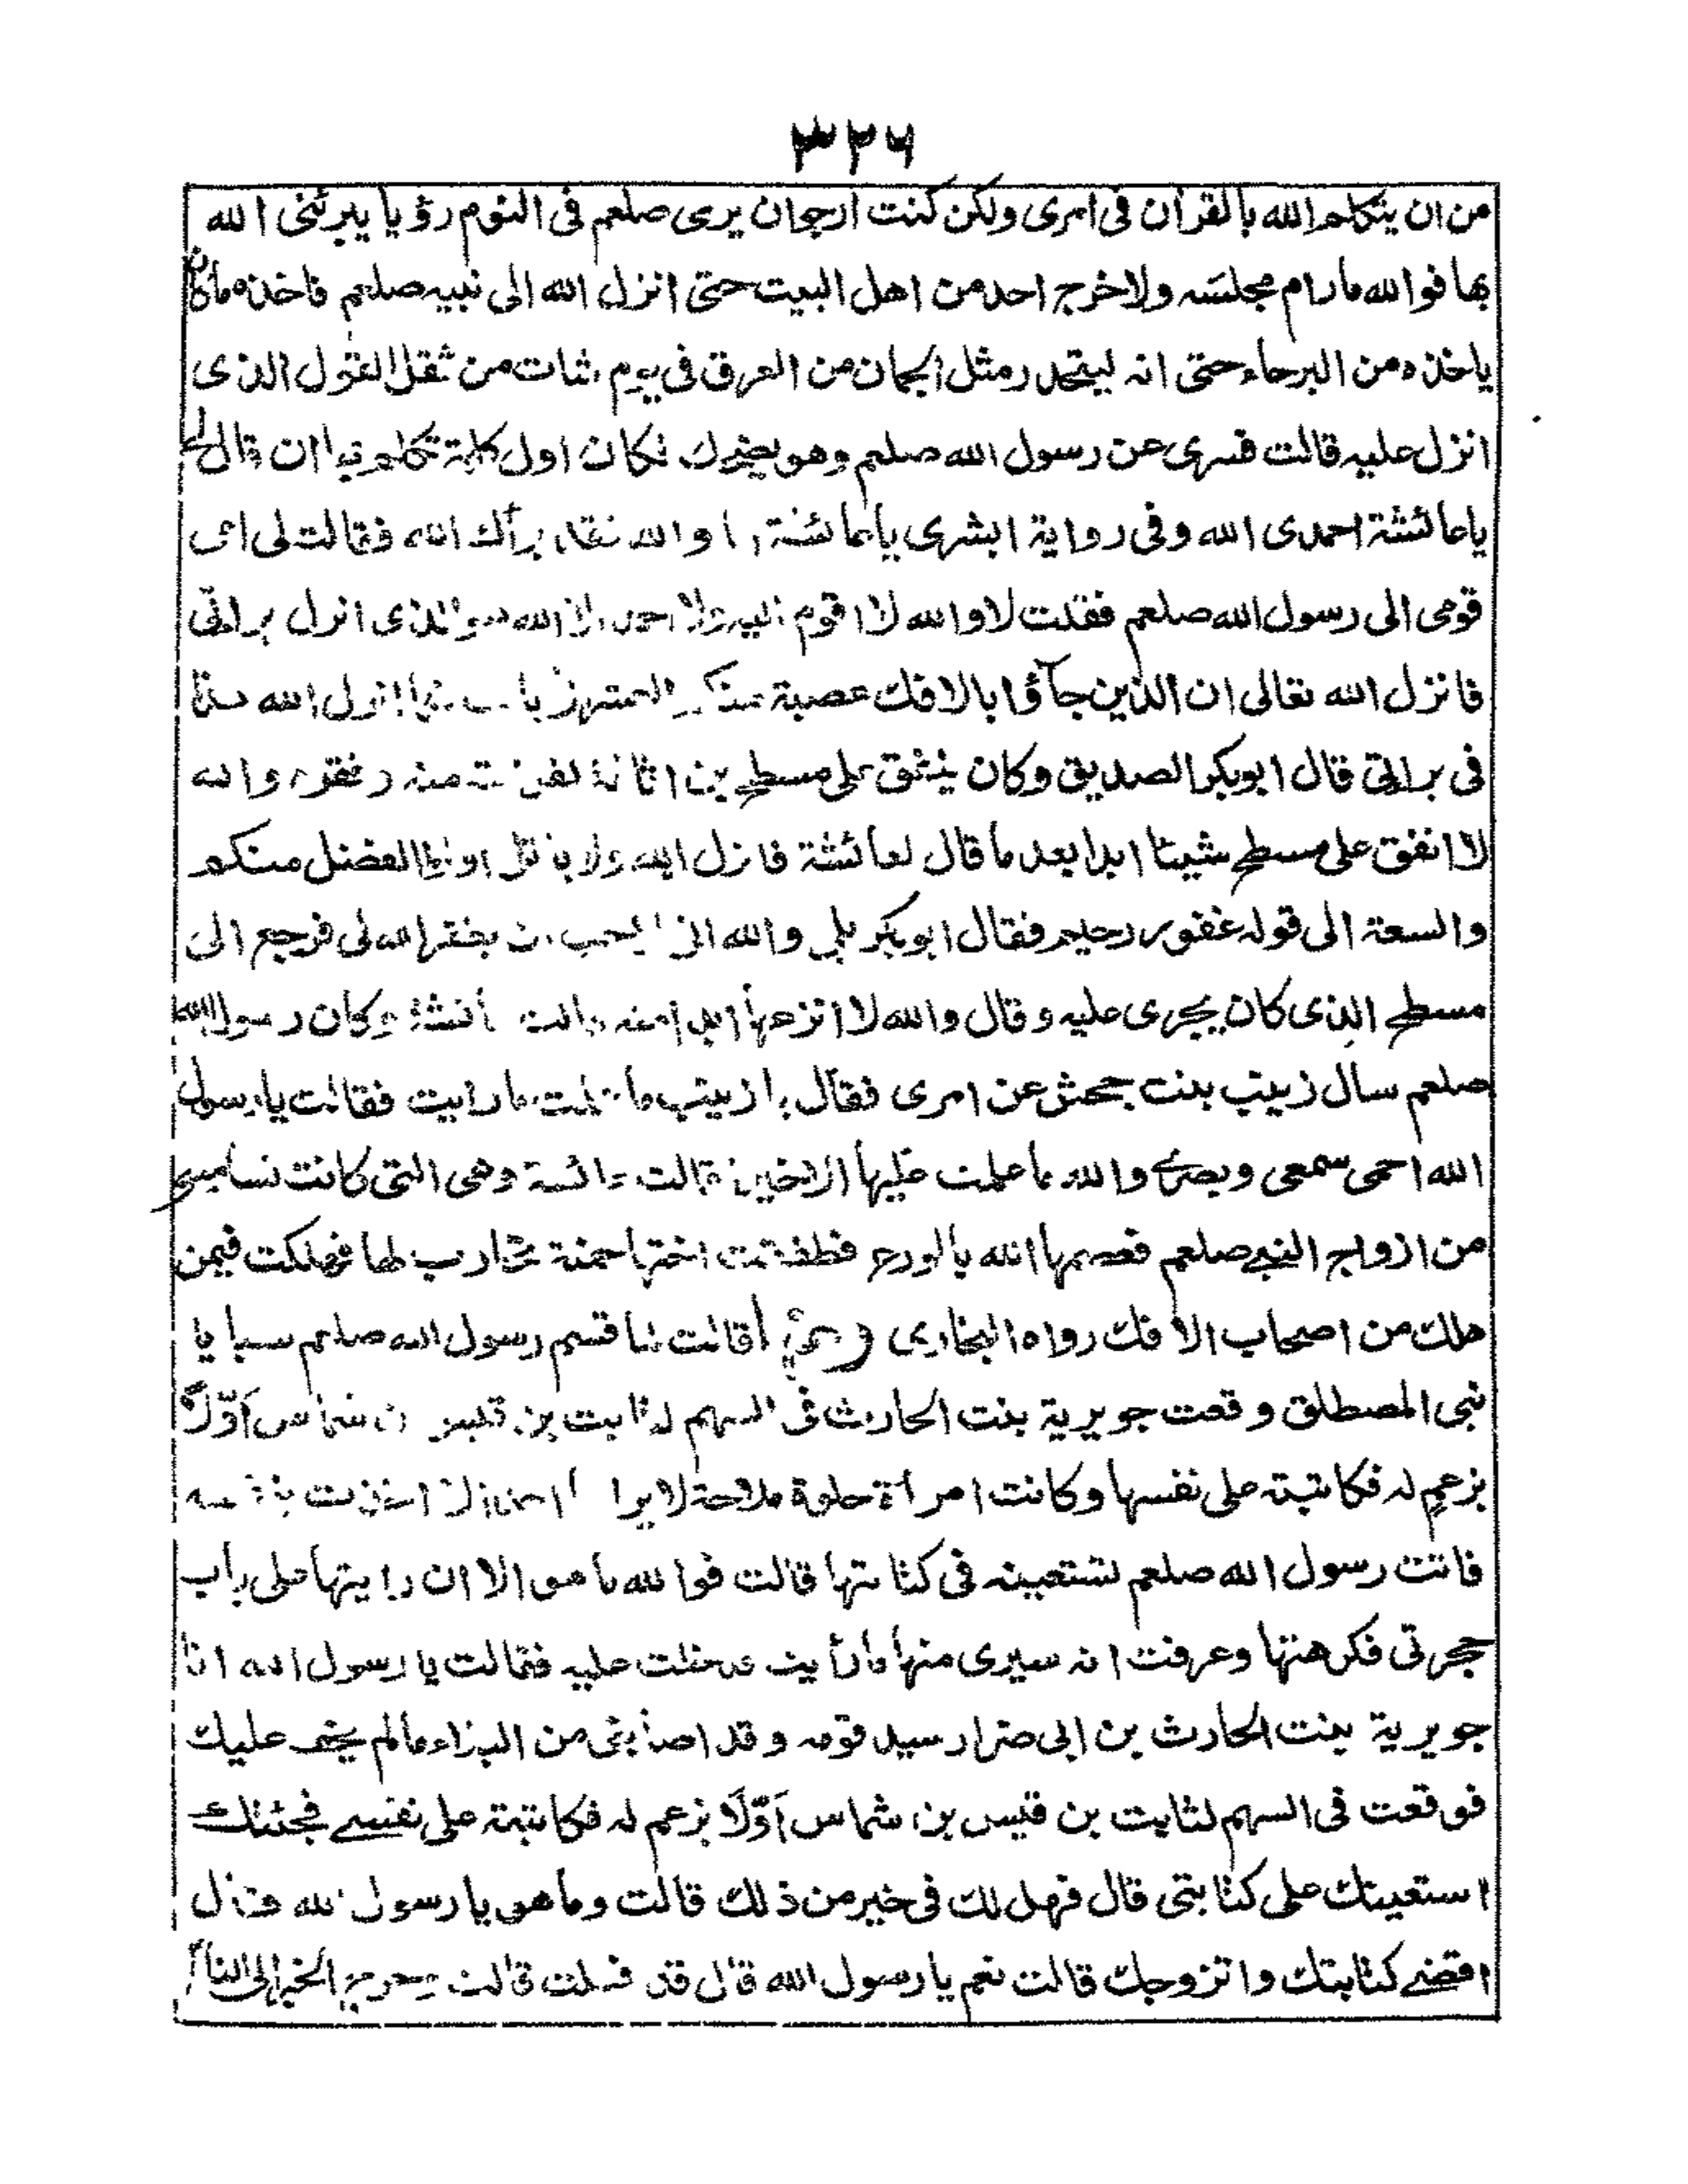 ٣٢٦
من ان يتكلم الله بالقرآن فى امرى ولكن كنت ارجو ان يرى صلعم فى النوم رؤيا يبرئنى الله
بها فوالله مارام مجلسه ولا خرج احد من اهل البيت حتى انزل الله الى نبيه صلعم فاخذه ماكان
ياخذه من البرحاء حتى انه ليتحدر مثل الجمان من العرق فى يوم شات من ثقل القول الذى
انزل عليه قالت فسرى عن رسول الله صلعم وهو يضحك فكان اول كلمة تكلم بها ان قال لى
ياعائشة احمدى الله وفى رواية ابشرى ياعائشة اما والله فقد برأك الله فقالت لى امى
قومى الى رسول الله صلعم فقلت لا والله لا اقوم اليه ولا احمد الا الله هو الذى انزل براءتى
فانزل الله تعالى ان الذين جآؤا بالافك عصبة منكم العشر انزل الله هذا
فى براءتى قال ابوبكر الصديق وكان ينفق على مسطح بن اثاثة لقرابته منه وفقره والله
لا انفق على مسطح شيئا ابدا بعد ما قال لعائشة فانزل الله ولا ياتل اولوا الفضل منكم
والسعة الى قوله غفور رحيم فقال ابوبكر بلى والله انى احب ان يغفر الله لى فرجع الى
مسطح الذى كان يجرى عليه وقال والله لا انزعها ابدا منه قالت عائشة وكان رسول الله
صلعم سال زينب بنت جحش عن امرى فقال يا زينب ما علمت ما رايت فقالت يا رسول
الله احمى سمعى وبصرى والله ما علمت عليها الا خيرا قالت عائشة وهى التى كانت تسامينى
من ازواج النبى صلعم فعصمها الله بالورع فطفقت اختها حمنة تحارب لها فهلكت فيمن
هلك من اصحاب الافك رواه البخارى قالت لما قسم رسول الله صلعم سبايا
بنى المصطلق وقعت جويرية بنت الحارث فى السهم لثابت بن قيس بن شماس اَوّلًا
بزعم له فكاتبته على نفسها وكانت امرأة حلوة ملاحة لا يراها احد الا اخذت بنفسه
فاتت رسول الله صلعم تستعينه فى كتابتها قالت فوالله ما هو الا ان رايتها على باب
حجرتى فكرهتها وعرفت انه سيرى منها مارأيت فدخلت عليه فقالت يا رسول الله انا
جويرية بنت الحارث بن ابى ضرار سيد قومه وقد اصابنى من البلاء مالم يخف عليك
فوقعت فى السهم لثابت بن قيس بن شماس اَوّلًا بزعم له فكاتبته على نفسى فجئتك
استعينك على كتابتى قال فهل لك فى خير من ذلك قالت وما هو يا رسول الله قال
اقضى كتابتك واتزوجك قالت نعم يا رسول الله قال قد فعلت قالت وخرج الخبر الى الناس